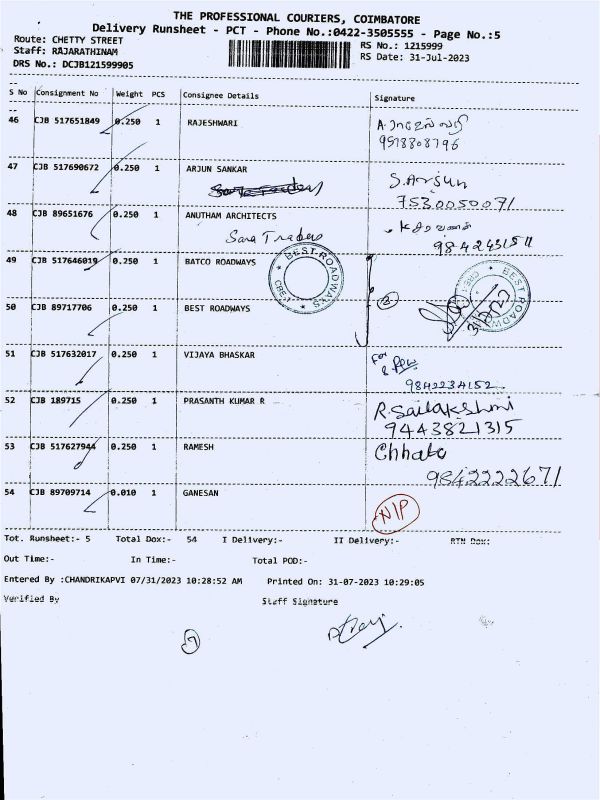 THE PROFESSIONAL COURIERS, COIMBATORE
Delivery Runsheet - PCT - Phone No.:0422-3505555 - Page No.:5
Route: CHETTY STREET
RS No.: 1215999
Staff: RAJARATHINAM
RS Date: 31-Jul-2023
DRS No.: DCJB121599905
S No Consignment No Weight PCS Consignee Details Signature
46 CJB 517651849 0.250 1 RAJESHWARI
47 CJB 517690672 0.250 1 ARJUN SANKAR S.Arjun
7530050071
48 CJB 89651676 0.250 1 ANUTHAM ARCHITECTS
Sara Traders
49 CJB 517646019 0.250 1 BATCO ROADWAYS
BEST ROADWAYS
CBE-1
BEST ROADWAYS
50 CJB 89717706 0.250 1 BEST ROADWAYS
51 CJB 517632017 0.250 1 VIJAYA BHASKAR For
9842234152
52 CJB 189715 0.250 1 PRASANTH KUMAR R R.Sailakshmi
9443821315
53 CJB 517627944 0.250 1 RAMESH
9842222671
54 CJB 89709714 0.010 1 GANESAN N/P
Tot. Runsheet:- 5 Total Dox:- 54 I Delivery:- II Delivery:- RTN Dox:
Out Time:- In Time:- Total POD:-
Entered By :CHANDRIKAPVI 07/31/2023 10:28:52 AM Printed On: 31-07-2023 10:29:05
Verified By Staff Signature